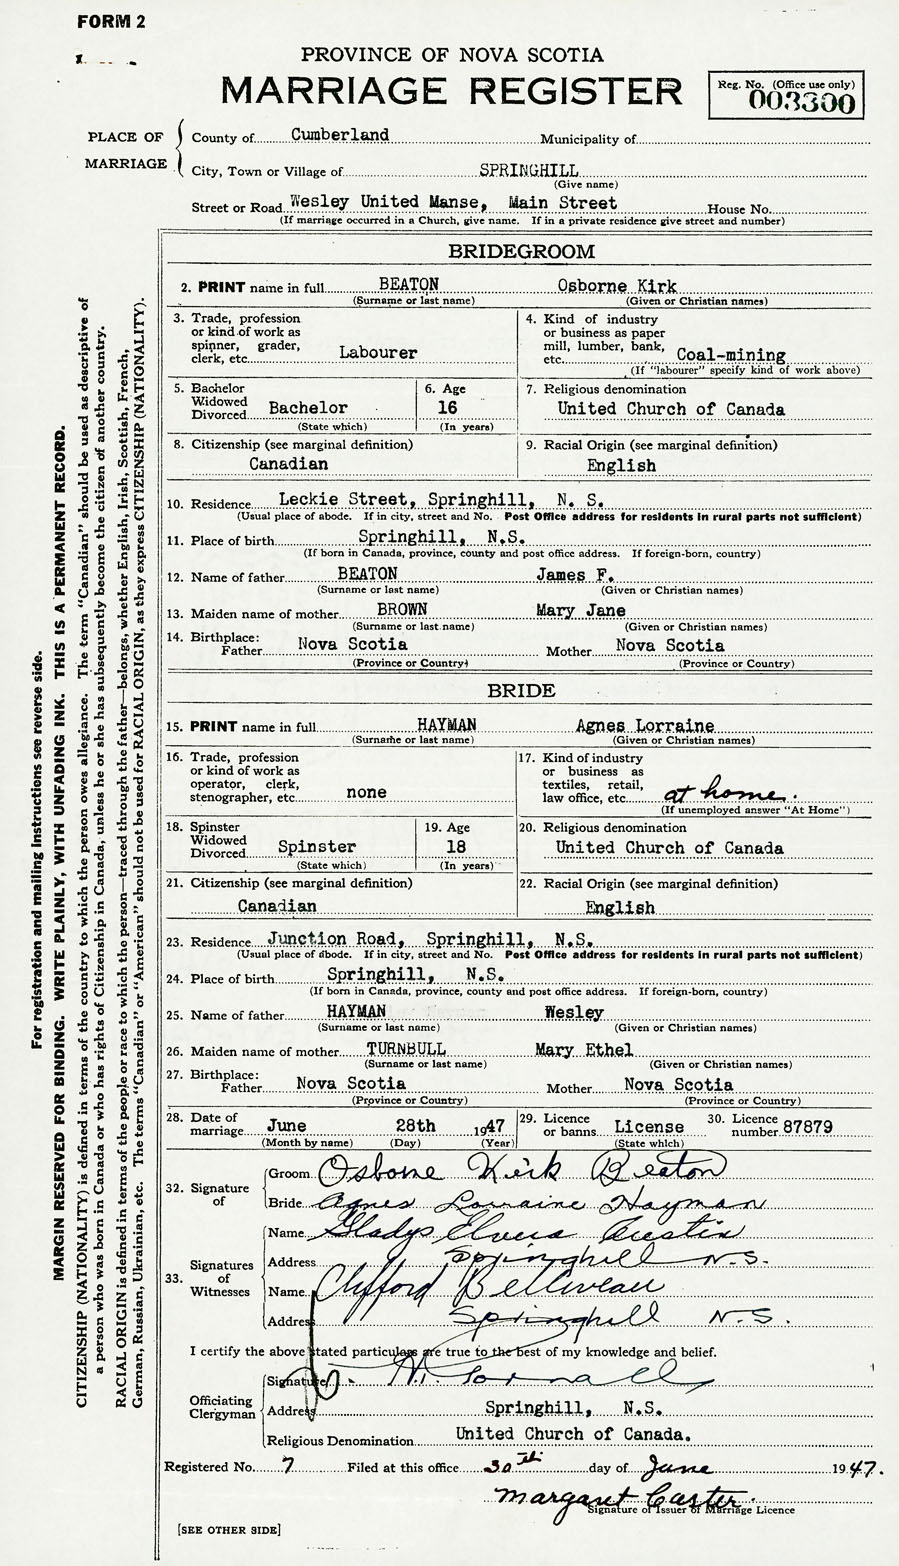 FORM 2
PROVINCE OF NOVA SCOTIA
MARRIAGE REGISTER
Reg. No. (Office use only)
003300
PLACE OF MARRIAGE
County of Cumberland Municipality of
City, Town or Village of SPRINGHILL
(Give name)
Street or Road Wesley United Manse, Main Street House No.
(If marriage occurred in a Church, give name. If in a private residence give street and number)
BRIDEGROOM
2. PRINT name in full BEATON Osborne Kirk
(Surname or last name) (Given or Christian names)
3. Trade, profession
or kind of work as
spinner, grader,
clerk, etc. Labourer
4. Kind of industry
or business as paper
mill, lumber, bank,
etc. Coal-mining
(If "labourer" specify kind of work above)
5. Bachelor
Widowed
Divorced Bachelor
(State which)
6. Age
16
(In years)
7. Religious denomination
United Church of Canada
8. Citizenship (see marginal definition)
Canadian
9. Racial Origin (see marginal definition)
English
10. Residence Leckie Street, Springhill, N. S.
(Usual place of abode. If in city, street and No. Post Office address for residents in rural parts not sufficient)
11. Place of birth Springhill, N.S.
(If born in Canada, province, county and post office address. If foreign-born, country)
12. Name of father BEATON James F.
(Surname or last name) (Given or Christian names)
13. Maiden name of mother BROWN Mary Jane
(Surname or last name) (Given or Christian names)
14. Birthplace:
Father Nova Scotia Mother Nova Scotia
(Province or Country) (Province or Country)
BRIDE
15. PRINT name in full HAYMAN Agnes Lorraine
(Surname or last name) (Given or Christian names)
16. Trade, profession
or kind of work as
operator, clerk,
stenographer, etc. none
17. Kind of industry
or business as
textiles, retail,
law office, etc. at home.
(If unemployed answer "At Home")
18. Spinster
Widowed
Divorced Spinster
(State which)
19. Age
18
(In years)
20. Religious denomination
United Church of Canada
21. Citizenship (see marginal definition)
Canadian
22. Racial Origin (see marginal definition)
English
23. Residence Junction Road, Springhill, N.S.
(Usual place of abode. If in city, street and No. Post Office address for residents in rural parts not sufficient)
24. Place of birth Springhill, N.S.
(If born in Canada, province, county and post office address. If foreign-born, country)
25. Name of father HAYMAN Wesley
(Surname or last name) (Given or Christian names)
26. Maiden name of mother TURNBULL Mary Ethel
(Surname or last name) (Given or Christian names)
27. Birthplace:
Father Nova Scotia Mother Nova Scotia
(Province or Country) (Province or Country)
28. Date of
marriage June 28th 1947
(Month by name) (Day) (Year)
29. Licence
or banns License
(State which)
30. Licence
number 87879
32. Signature of
Groom Osborne Kirk Beaton
Bride Agnes Lorraine Hayman
33. Signatures of Witnesses
Name Gladys Elvera Austin
Address Springhill N.S.
Name Clifford Belliveau
Address Springhill N.S.
I certify the above stated particulars are true to the best of my knowledge and belief.
Officiating Clergyman
Signature
Address Springhill, N.S.
Religious Denomination United Church of Canada.
Registered No. 7 Filed at this office 30th day of June 1947.
Margaret Carter.
Signature of Issuer of Marriage Licence
[SEE OTHER SIDE]
For registration and mailing instructions see reverse side.
MARGIN RESERVED FOR BINDING. WRITE PLAINLY, WITH UNFADING INK. THIS IS A PERMANENT RECORD.
CITIZENSHIP (NATIONALITY) is defined in terms of the country to which the person owes allegiance. The term "Canadian" should be used as descriptive of
a person who was born in Canada or who has rights of Citizenship in Canada, unless he or she has subsequently become the citizen of another country.
RACIAL ORIGIN is defined in terms of the people or race to which the person—traced through the father—belongs, whether English, Irish, Scottish, French,
German, Russian, Ukrainian, etc. The terms "Canadian" or "American" should not be used for RACIAL ORIGIN, as they express CITIZENSHIP (NATIONALITY).